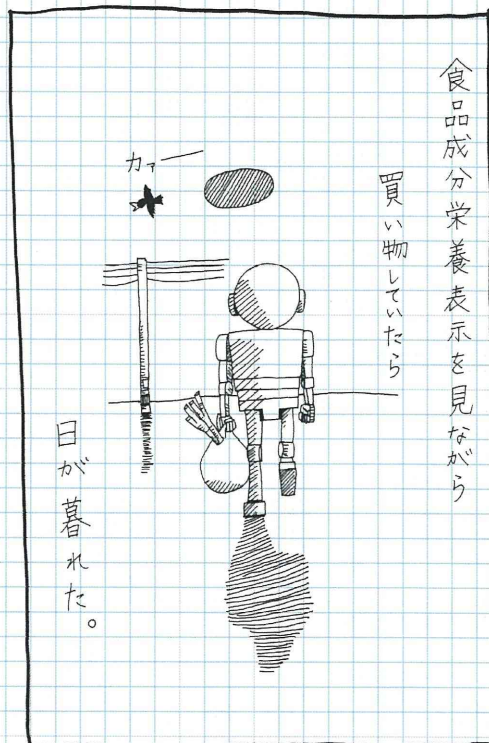 食品成分栄養表示を見ながら
買い物していたら
カァー
日が暮れた。